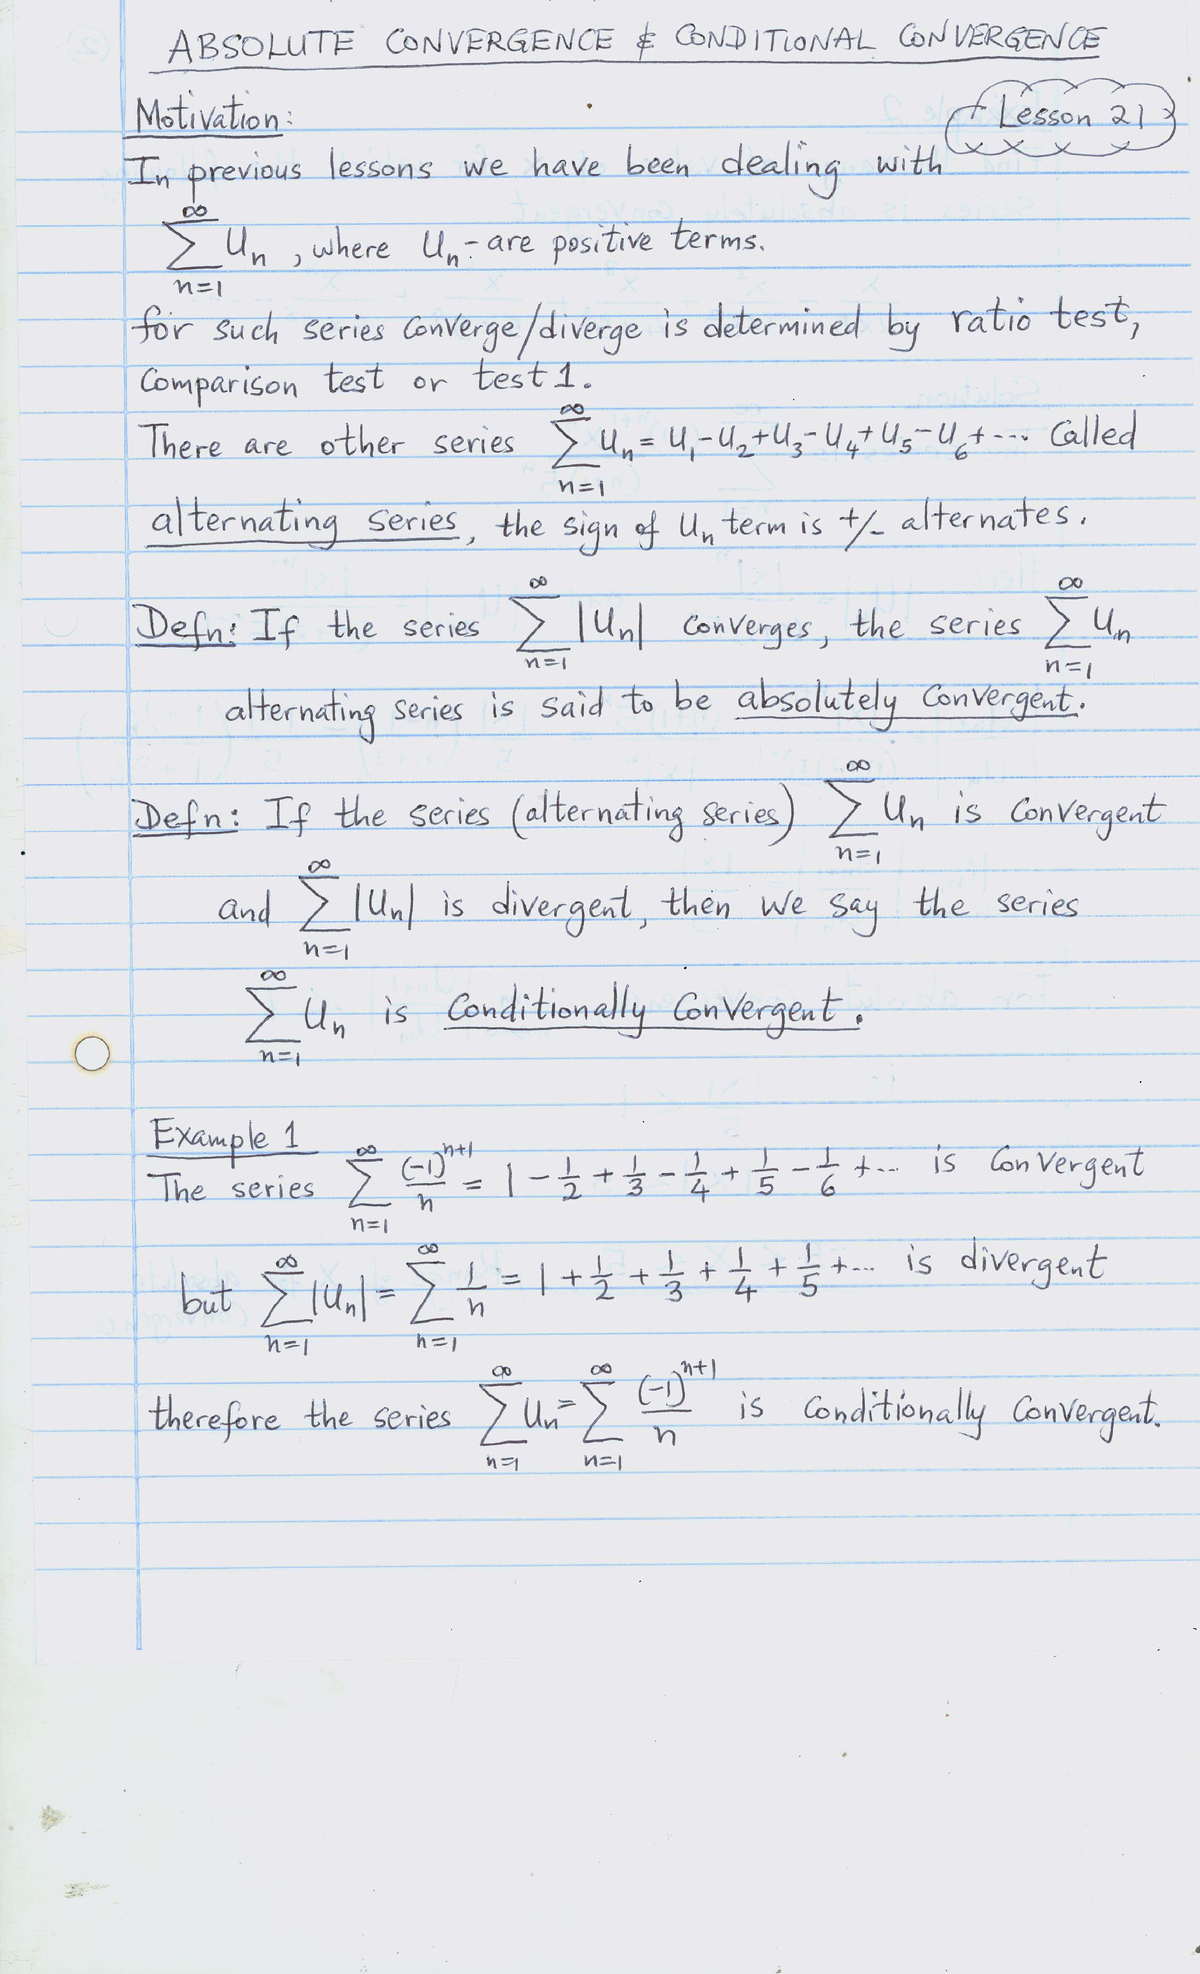 ABSOLUTE CONVERGENCE & CONDITIONAL CONVERGENCE
Motivation:
Lesson 21
In previous lessons we have been dealing with
∞∑n=1 Un , where Un - are positive terms.
for such series converge/diverge is determined by ratio test,
Comparison test or test 1.
There are other series ∞∑n=1 Un = U1 - U2 + U3 - U4 + U5 - U6 + --- Called
alternating series, the sign of Un term is +/- alternates.
Defn: If the series ∞∑n=1 |Un| converges, the series ∞∑n=1 Un
alternating series is said to be absolutely Convergent.
Defn: If the series (alternating series) ∞∑n=1 Un is Convergent
and ∞∑n=1 |Un| is divergent, then we say the series
∞∑n=1 Un is Conditionally Convergent.
Example 1
The series ∞∑n=1 (-1)^(n+1)/n = 1 - 1/2 + 1/3 - 1/4 + 1/5 - 1/6 + --- is Convergent
but ∞∑n=1 |Un| = ∞∑n=1 1/n = 1 + 1/2 + 1/3 + 1/4 + 1/5 + --- is divergent
therefore the series ∞∑n=1 Un = ∞∑n=1 (-1)^(n+1)/n is Conditionally Convergent.